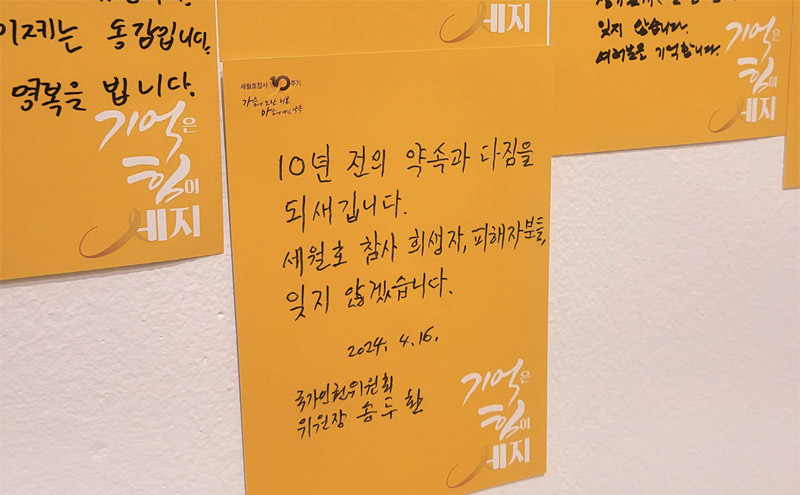 이제는 동감입니다.
영복을 빕니다.
기억은
힘이
세지
세지
잊지 않습니다.
여러분을 기억합니다.
기억은
힘이
세지
세월호참사 10주기
10년 전의 약속과 다짐을
되새깁니다.
세월호 참사 희생자, 피해자분들,
잊지 않겠습니다.
2024. 4. 16.
국가인권위원회
위원장 송두환
기억은
힘이
세지